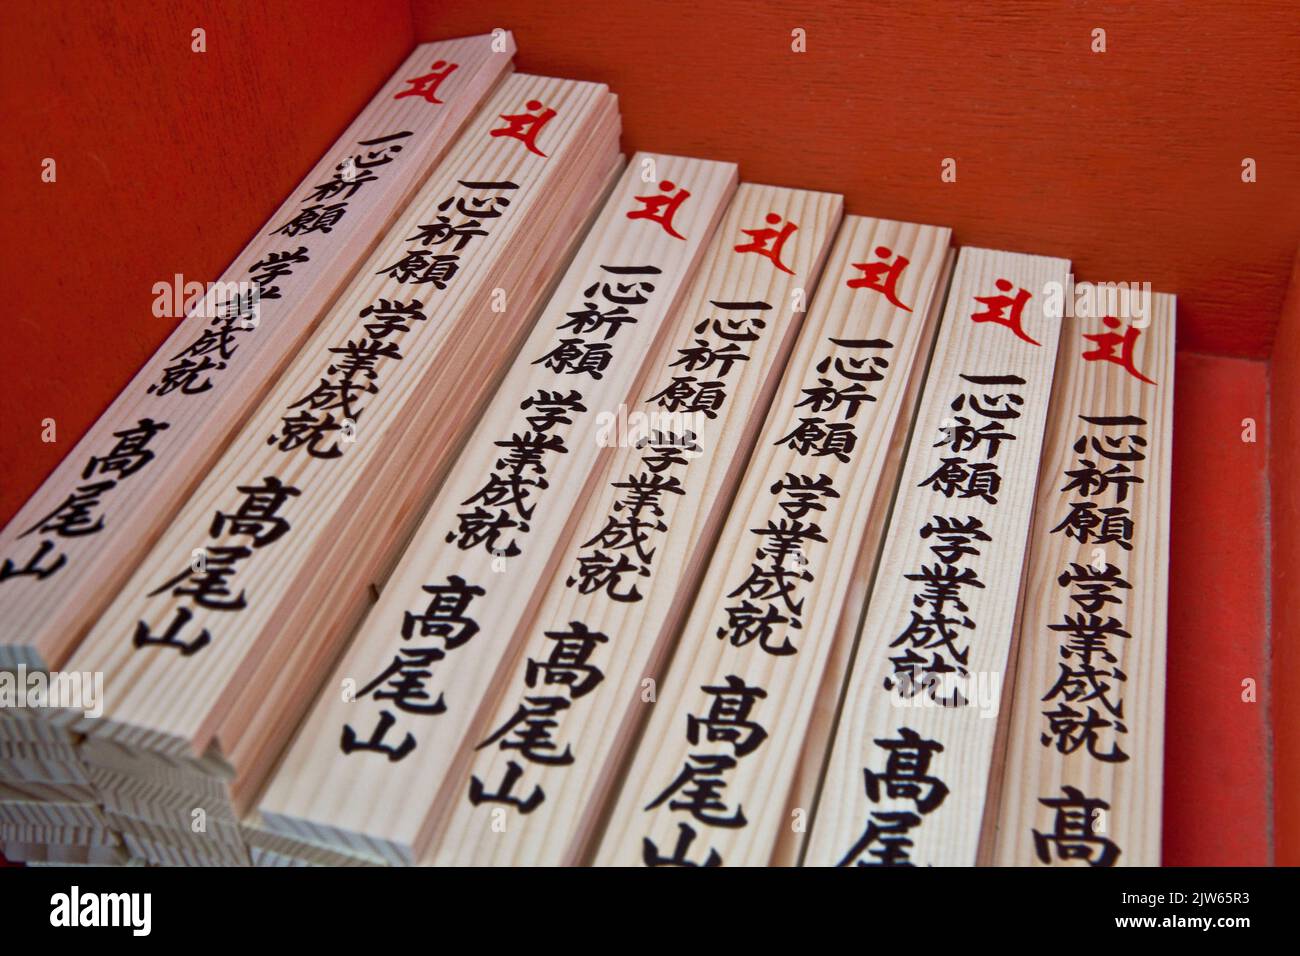 一心祈願 学業成就 髙尾山
一心祈願 学業成就 髙尾山
一心祈願 学業成就 髙尾山
一心祈願 学業成就 髙尾山
一心祈願 学業成就 髙尾山
一心祈願 学業成就 髙尾
一心祈願 学業成就 髙
alamy
Image ID: 2JW65R3
www.alamy.com